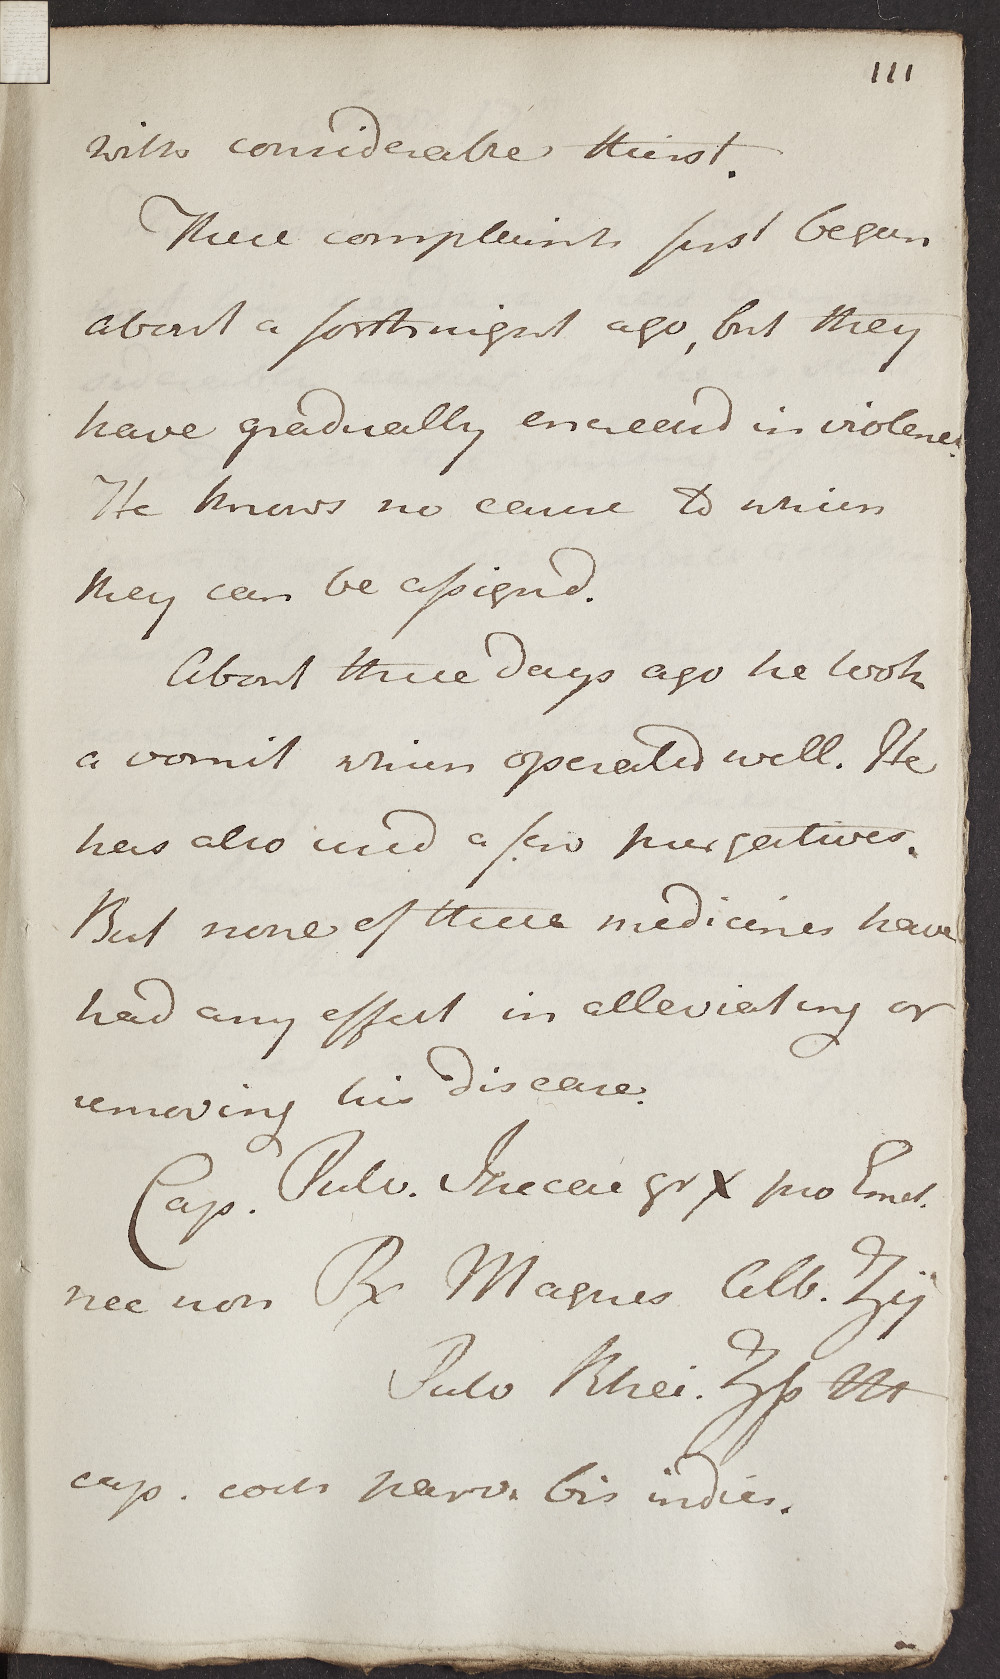 111
with considerable thirst.
These complaints first began
about a forthnight ago, but they
have gradually encreasd in violence.
He knows no cause to which
they can be assignd.
About three days ago he took
a vomit which operated well. He
has also used a few purgatives.
But none of these medicines have
had any effect in alleviating or
removing his disease.
Cap. Pulv. Ipecac gr X pro Emet.
nec non ℞ Magnes Alb. ʒij
Pulv Rhei. ʒß M
cap. coch parv. bis indies.